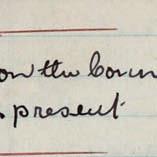 on the Coun
. present.